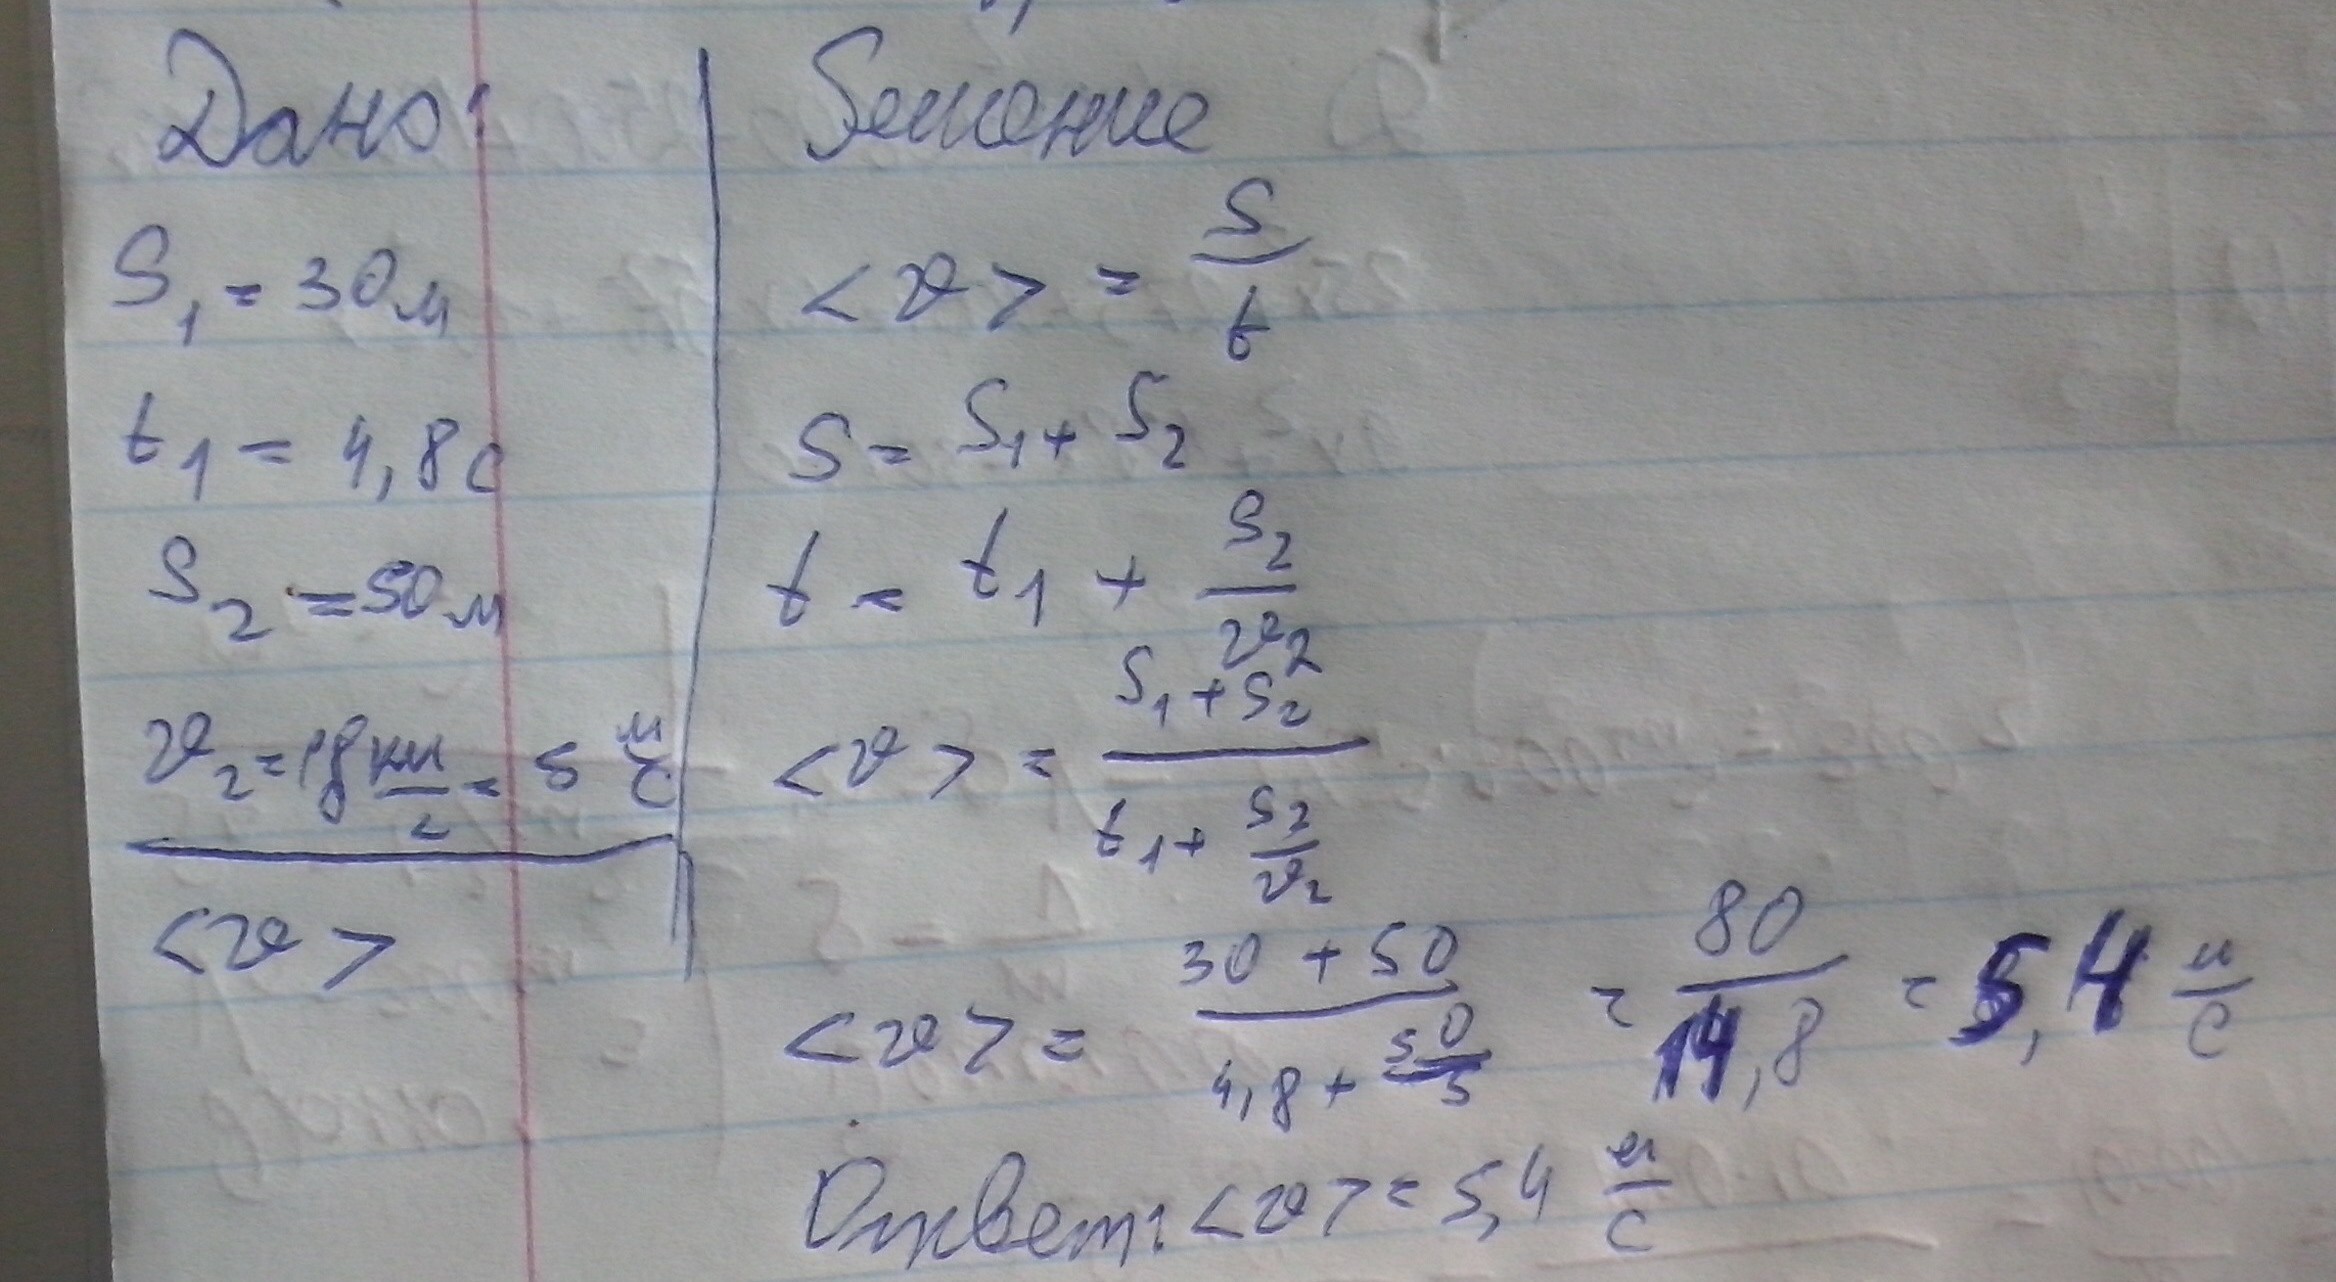 Дано:
S₁ = 30 м
t₁ = 4,8 с
S₂ = 50 м
𝜗₂ = 18 км/г = 5 м/с
<𝜗>
Решение
<𝜗> = S/t
S = S₁ + S₂
t = t₁ + S₂/𝜗₂
<𝜗> = (S₁ + S₂)/(t₁ + S₂/𝜗₂)
<𝜗> = (30 + 50)/(4,8 + 50/5) = 80/14,8 = 5,4 м/с
Ответ: <𝜗> = 5,4 м/с